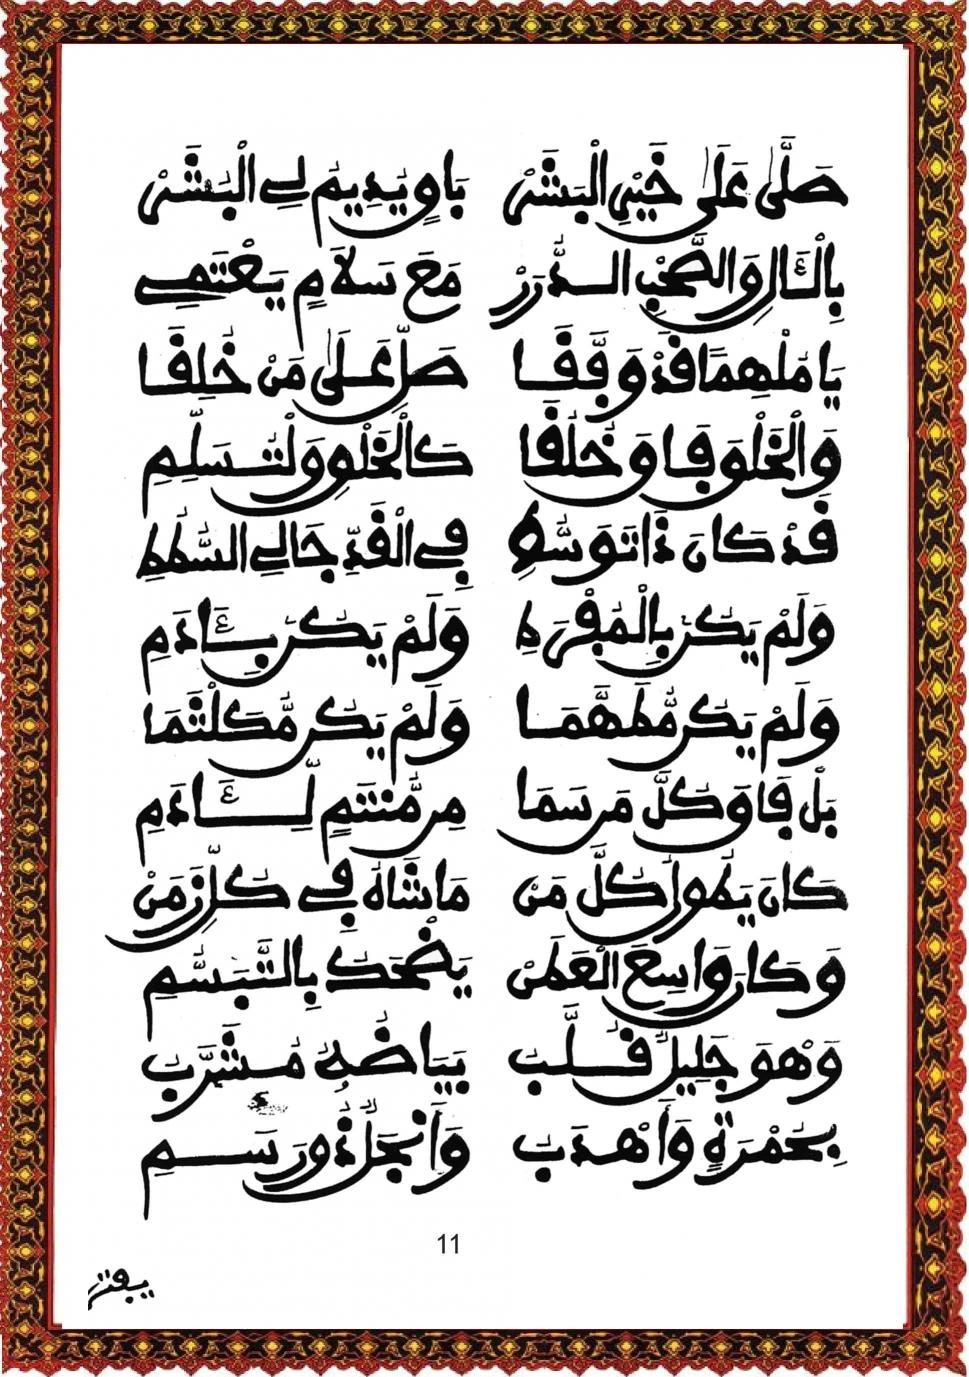 صَلَّى عَلَى خَيْرِ الْبَشَرْ بَاقٍ يُدِيمُ لِي الْبَشَرْ
بِالْآلِ وَالصَّحْبِ الدُّرَرْ مَعَ سَلَامٍ يَعْتَمِي
يَا مُلْهِمًا قَدْ وَفَّقَا صَلِّ عَلَى مَنْ خُلِقَا
وَالْخَلْقَ فَاقَ خُلُقَا كَالْخَلْقِ وَلْتُسَلِّمِ
قَدْ كَانَ ذَا تَوَسُّطِ فِي الْقَدِّ جَالِي
وَلَمْ يَكُنْ بِالْمُفْرِطِ وَلَمْ يَكُنْ بِآدَمِ
وَلَمْ يَكُنْ مُطَهَّمَا وَلَمْ يَكُنْ مُكَلْثَمَا
بَلْ فَاقَ كُلَّ مَنْ سَمَا مِنْ مُنْتَمٍ لِآدَمِ
كَانَ يَطُولُ كُلَّ مَنْ مَاشَاهُ فِي كُلِّ زَمَنْ
وَكَانَ وَاسِعَ الْعَطَنْ يَضْحَكُ بِالتَّبَسُّمِ
وَهْوَ جَلِيلٌ قُلَّبُ بَيَاضُهُ مُشَرَّبُ
بِحُمْرَةٍ وَأَهْدَبُ وَأَنْجَلٌ ذُو رَسَمِ
11